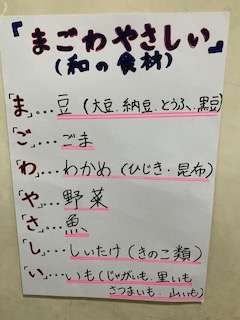 『まごわやさしい』
(和の食材)
「ま」… 豆 (大豆.納豆.とうふ.黒豆)
「ご」… ごま
「わ」… わかめ (ひじき・昆布)
「や」… 野菜
「さ」… 魚
「し」… しいたけ (きのこ類)
「い」… いも (じゃがいも.里いも
さつまいも.山いも)